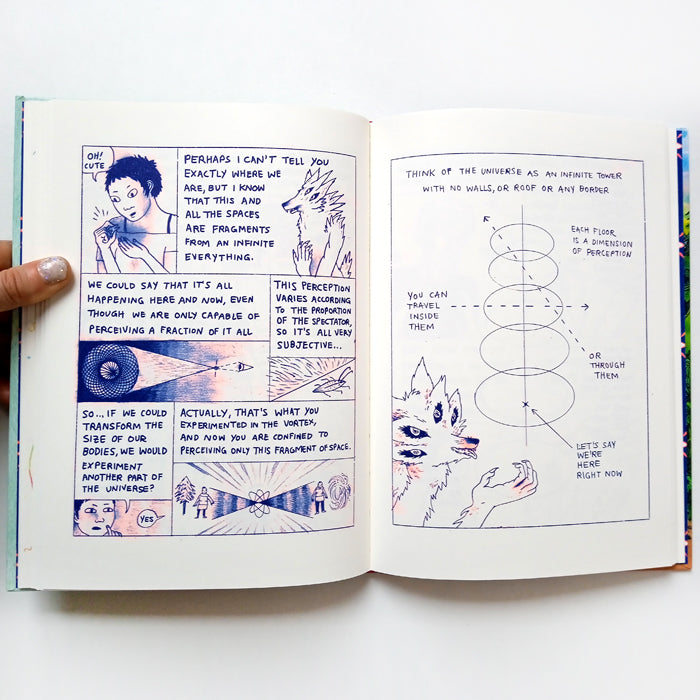 OH!
CUTE
PERHAPS I CAN'T TELL YOU
EXACTLY WHERE WE
ARE, BUT I KNOW
THAT THIS AND
ALL THE SPACES
ARE FRAGMENTS
FROM AN INFINITE
EVERYTHING.
WE COULD SAY THAT IT'S ALL
HAPPENING HERE AND NOW, EVEN
THOUGH WE ARE ONLY CAPABLE OF
PERCEIVING A FRACTION OF IT ALL
THIS PERCEPTION
VARIES ACCORDING
TO THE PROPORTION
OF THE SPECTATOR,
SO IT'S ALL VERY
SUBJECTIVE...
SO... IF WE COULD
TRANSFORM THE
SIZE OF OUR
BODIES, WE WOULD
EXPERIMENT
ANOTHER PART OF
THE UNIVERSE?
YES
ACTUALLY, THAT'S WHAT YOU
EXPERIMENTED IN THE VORTEX,
AND NOW YOU ARE CONFINED TO
PERCEIVING ONLY THIS FRAGMENT OF SPACE.
THINK OF THE UNIVERSE AS AN INFINITE TOWER
WITH NO WALLS, OR ROOF OR ANY BORDER
EACH FLOOR
IS A DIMENSION
OF PERCEPTION
YOU CAN
TRAVEL
INSIDE
THEM
OR
THROUGH
THEM
LET'S SAY
WE'RE
HERE
RIGHT NOW